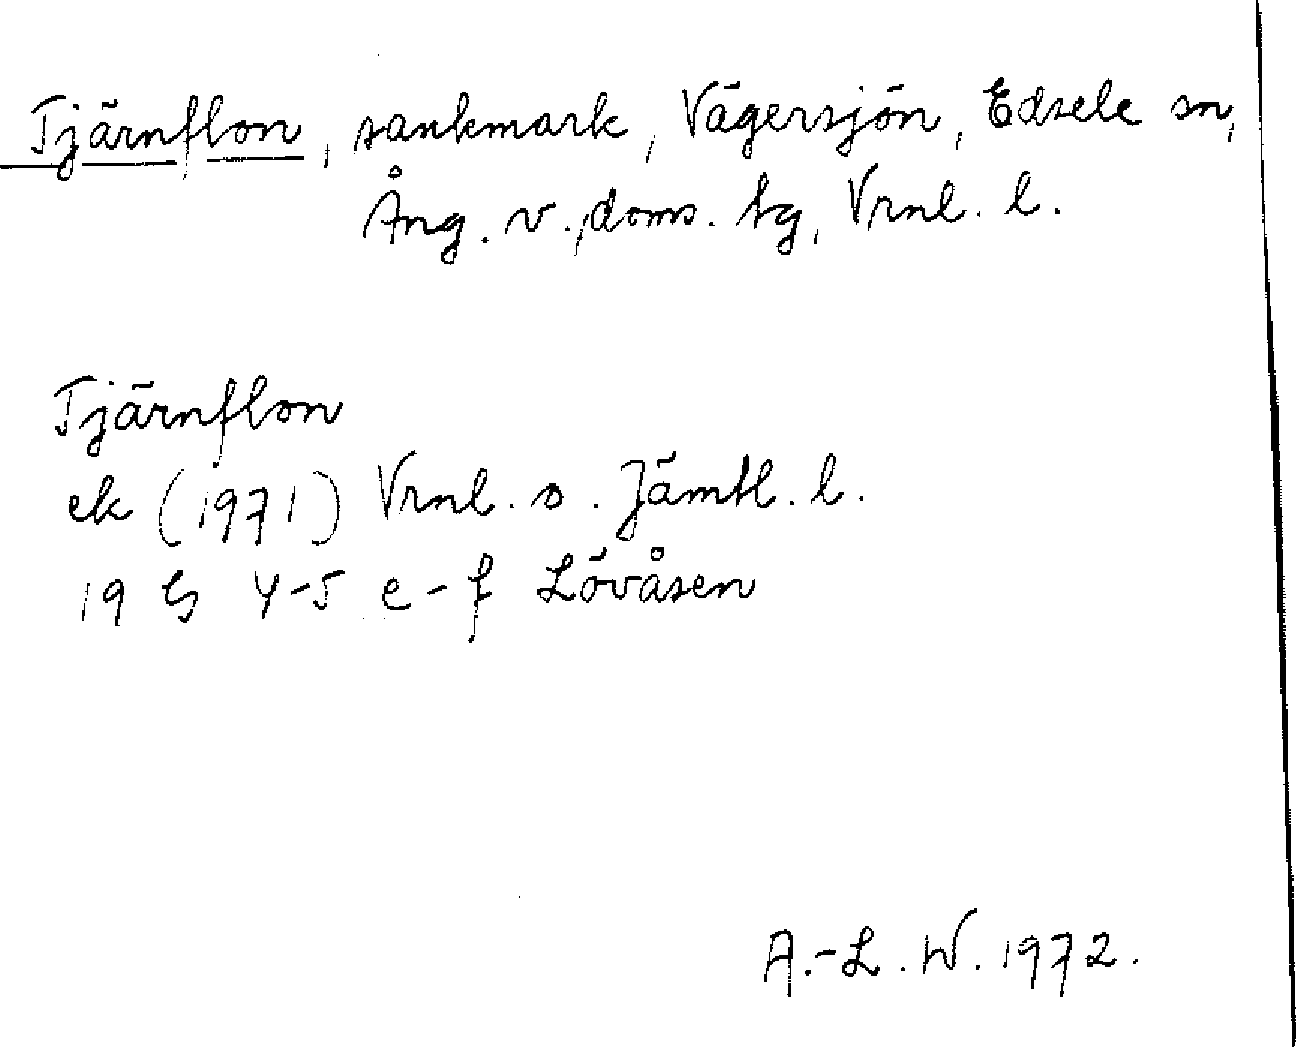 Tjärnflon, sankmark, Vägersjön, Edsele sn,
Ång. v., doms. tg, Vrnl. l.
Tjärnflon
ek (1971) Vrnl. o. Jämtl. l.
19 G 4-5 e-f Lövåsen
A.-L. W. 1972.